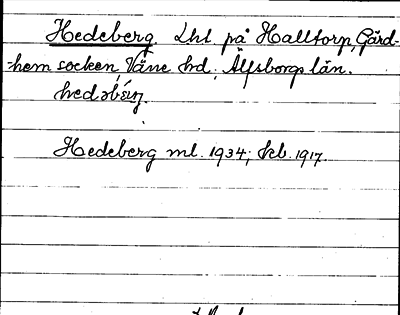 Hedeberg. Lht på Halltorp, Gärd-
hem socken, Väne hd, Älfsborgs län.
Hedeberg ml. 1934; kb. 1917.